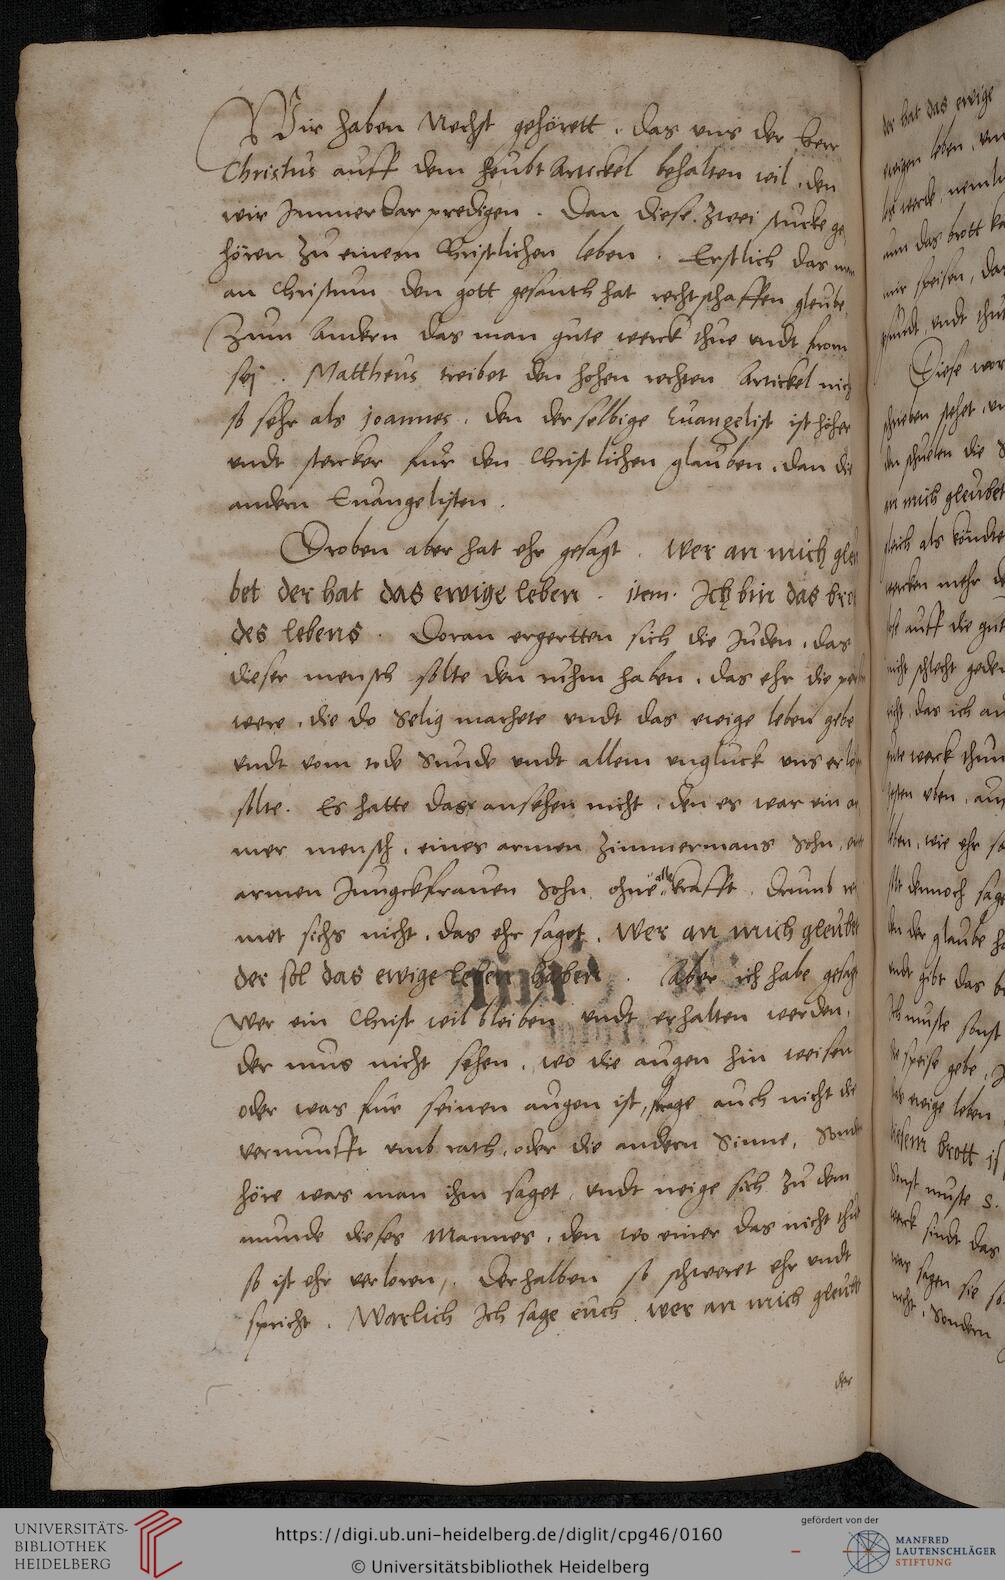 Wir haben Nechst gehörett, das uns der herr
Christus auff dem heubt Artickel behalten wil, den
wir Immerdar predigen. Dan diese zwei stucke ge
hören zu einem Christlichen leben. Erstlich das man
an Christum den gott gesanth hat rechtschaffen gleube,
Zum Andern das man gute werck thue undt from
sej. Mattheus treibet den hohen rechten Artickel nich
so sehr als Joannes, den derselbige Euangelist ist höher
undt stercker fur den Christlichen glauben, dan die
andern Euangelisten.
Droben aber hat ehr gesagt. Wer an mich gleu
bet der hat das ewige leben. item. Ich bin das brot
des lebens. Doran ergertten sich die Juden, das
dieser mensch solte den ruhm haben, das ehr die
were, die do selig machete undt das ewige leben gebe
undt vom tode Sunde undt allem ungluck uns
solte. Es hatte das ansehen nicht, den es war ein ar
mer mensch, eines armen Zimmermans Sohn,
armen Jungckfrauen Sohn, ohne alle krafft. Drumb
met sichs nicht, das ehr saget. Wer an mich gleubet
der sol das ewige leben haben. Aber ich habe gesagt
Wer ein Christ wil bleiben undt erhalten werden,
der mus nicht sehen, wo die augen hin weisen
oder was fur seinen augen ist, frage auch nicht die
vernunfft umb rath, oder die andern Sinne, Sondern
höre was man ihm saget, undt neige sich zu dem
munde dieses Mannes, den wo einer das nicht thut
so ist ehr verloren, Derhalben so schweret ehr undt
spricht. Warlich Ich sage euch, wer an mich gleubt
der
der hat das ewige
ewigen leben,
werde, nemli
nun das brott
mir speisen,
undt
Diese wor
schrieben stehet,
den schulen die
an mich gleubet
gleich als köndte
wercken mehr
auff die gute
nicht schlecht
nicht das ich an
gute werck thun
oben,
wie ehr
dennoch sage
den der glaube
undt gibt das
Ich muste sonst
die speise gebe,
das ewige leben
diesem brott
Sonst muste
werck sindt das
was sagen sie
nicht, Sondern
UNIVERSITÄTS-
BIBLIOTHEK
HEIDELBERG
https://digi.ub.uni-heidelberg.de/diglit/cpg46/0160
© Universitätsbibliothek Heidelberg
gefördert von der
MANFRED
LAUTENSCHLÄGER
STIFTUNG